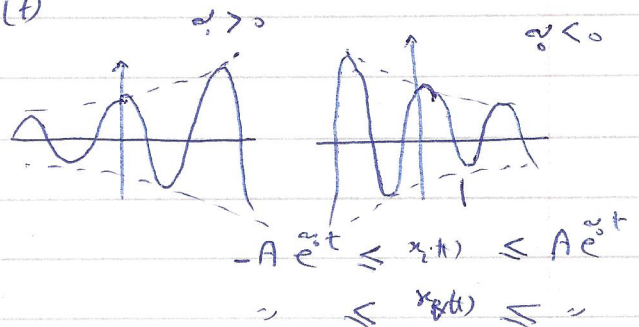 (t)
σ₀ > 0 σ₀ < 0
-A e^σ₀t ≤ xᵢ(t) ≤ A e^σ₀t
” ≤ x_R(t) ≤ ”